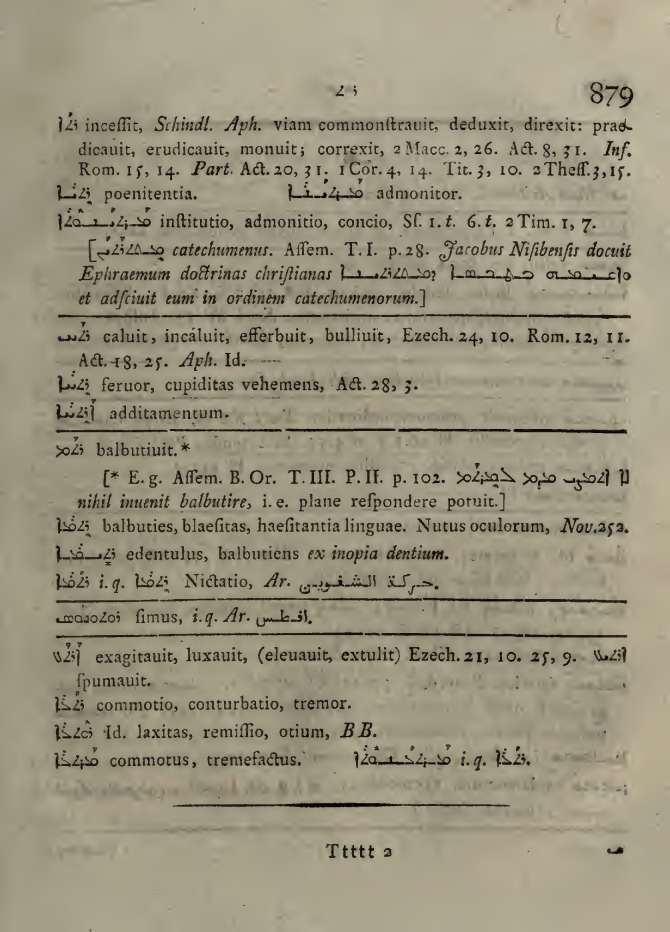 ܪܬ 879
ܪܬܐ inceſſit, Schindl. Aph. viam commonſtrauit, deduxit, direxit: præ-
dicauit, erudicauit, monuit; correxit, 2 Macc. 2, 26. Act. 8, 31. Inf.
Rom. 15, 14. Part. Act. 20, 31. 1 Cor. 4, 14. Tit. 3, 10. 2 Theſſ. 3, 15.
poenitentia. ܡܪܬܝܢܐ admonitor.
ܡܪܬܝܢܘܬܐ inſtitutio, admonitio, concio, Sſ. 1. t. 6. t. 2 Tim. 1, 7.
[catechumenus. Aſſem. T. I. p. 28. Jacobus Niſibenſis docuit
Ephraemum doctrinas chriſtianas
et adſciuit eum in ordinem catechumenorum.]
ܪܬܚ caluit, incaluit, efferbuit, bulliuit, Ezech. 24, 10. Rom. 12, 11.
Act. 18, 25. Aph. Id.
ܪܬܚܐ feruor, cupiditas vehemens, Act. 28, 3.
additamentum.
ܪܬܡ balbutiuit.*
[* E. g. Aſſem. B. Or. T. III. P. II. p. 102.
nihil inuenit balbutire, i. e. plane reſpondere potuit.]
ܪܬܡܐ balbuties, blaeſitas, haeſitantia linguae. Nutus oculorum, Nov. 252.
edentulus, balbutiens ex inopia dentium.
ܪܬܡܐ i. q. ܪܬܡܐ Nictatio, Ar. حركة الشفويين.
ſimus, i. q. Ar. افطس.
exagitauit, luxauit, (eleuauit, extulit) Ezech. 21, 10. 25, 9.
ſpumauit.
commotio, conturbatio, tremor.
Id. laxitas, remiſſio, otium, BB.
commotus, tremefactus. i. q.
Ttttt 2